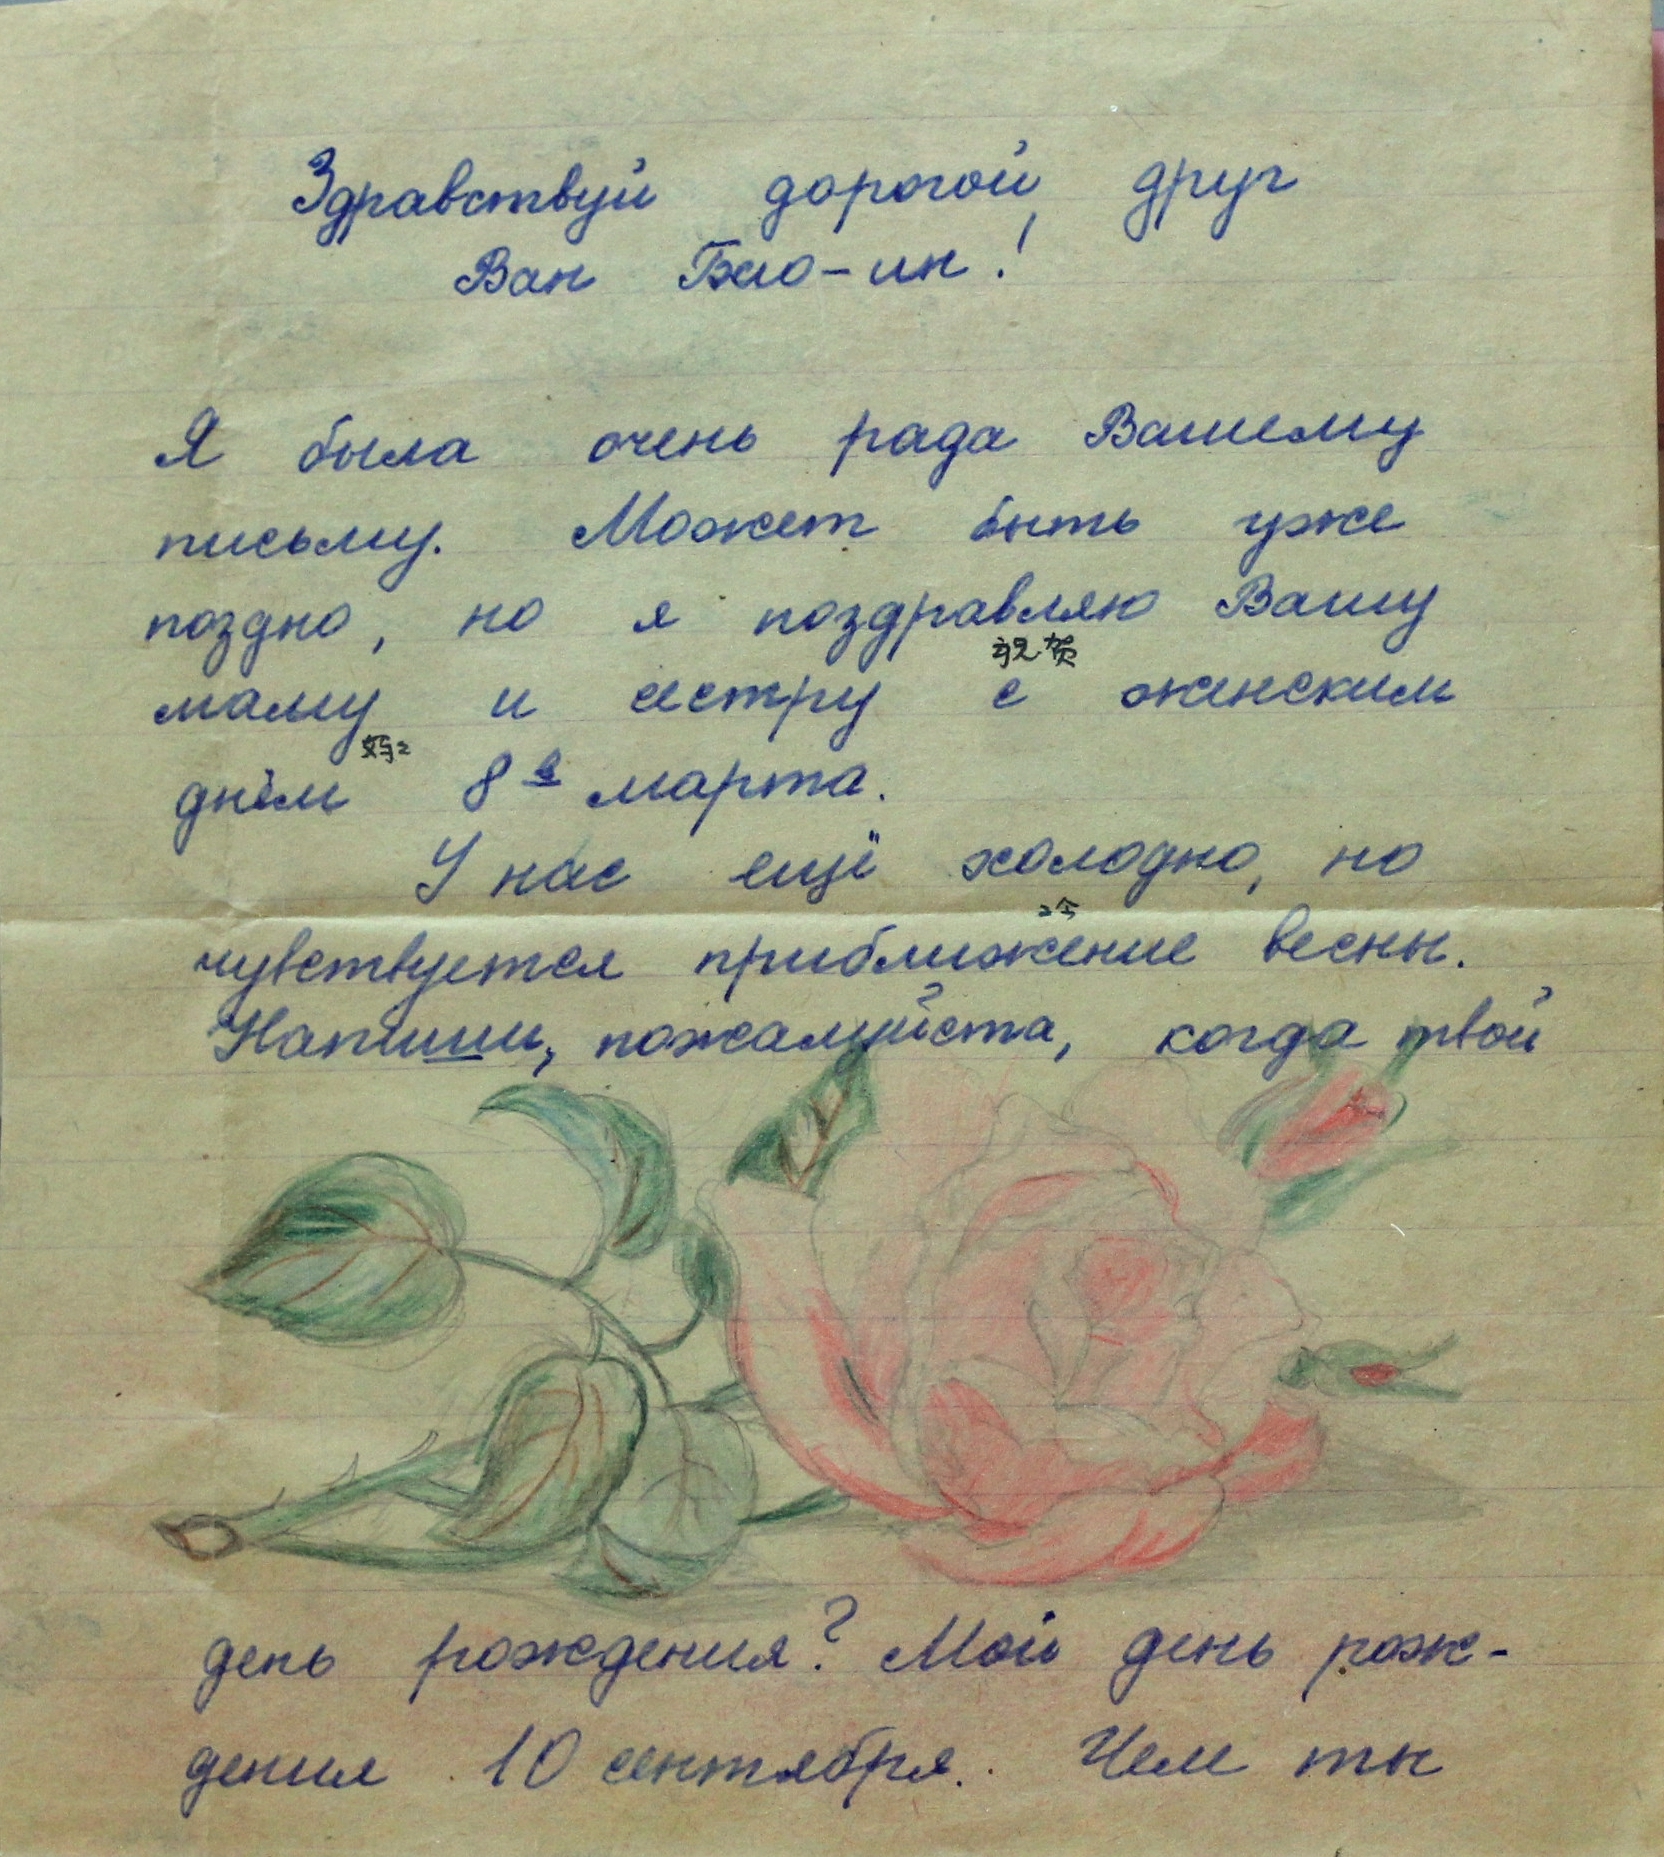 Здравствуй дорогой друг
Ван Бао-ин!
Я была очень рада Вашему
письму. Может быть уже
поздно, но я поздравляю Вашу
祝贺
маму и сестру с женским
妈妈
днём 8е марта.
У нас ещё холодно, но
чувствуется приближение весны.
Напиши, пожалуйста, когда твой
день рождения? Мой день рож-
дения 10 сентября. Чем ты